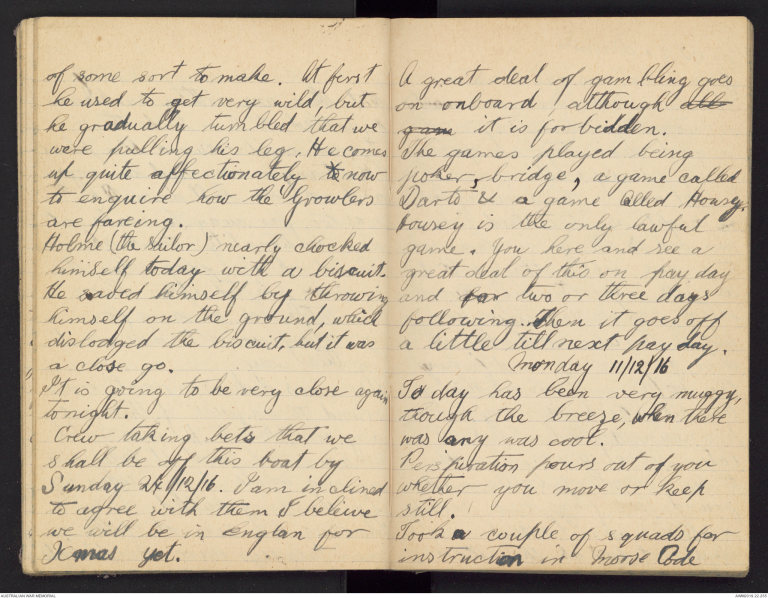 of some sort to make. At first
he used to get very wild, but
he gradually tumbled that we
were pulling his leg. He comes
up quite affectionately to now
to enquire how the Growlers
are fareing.
Holme (the sailor) nearly chocked
himself today with a biscuit.
He saved himself by throwing
himself on the ground, which
dislodged the biscuit, but it was
a close go.
It is going to be very close again
tonight.
Crew taking bets that we
shall be off this boat by
Sunday 24/12/16. I am inclined
to agree with them I believe
we will be in Englan for
Xmas yet.
A great deal of gambling goes
on onboard although all
gam it is forbidden.
The games played being
poker, bridge, a game called
Darts & a game called Housey.
Housey is the only lawful
game. You here and see a
great deal of this on pay day
and for two or three days
following. Then it goes off
a little till next pay day.
Monday 11/12/16
To day has been very muggy,
though the breeze, when there
was any was cool.
Perspiration pours out of you
whether you move or keep
still.
Took a couple of squads for
instruction in Morse Code
AUSTRALIAN WAR MEMORIAL